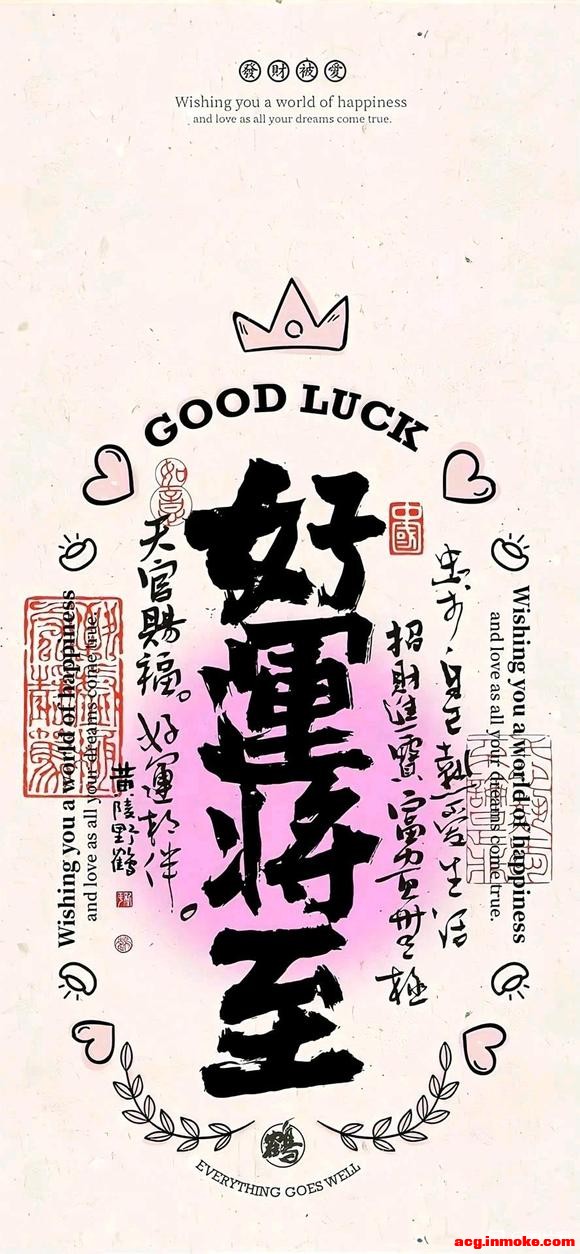 發財被愛
Wishing you a world of happiness
and love as all your dreams come true.
GOOD LUCK
好運將至
如意
中國
忠於自己熱愛生活
招財進寶富
天官賜福。好運相伴。
黄陵野鶴
Wishing you a world of happiness
and love as all your dreams come true.
Wishing you a world of happiness
and love as all your dreams come true.
鶴
EVERYTHING GOES WELL
acg.inmoke.com